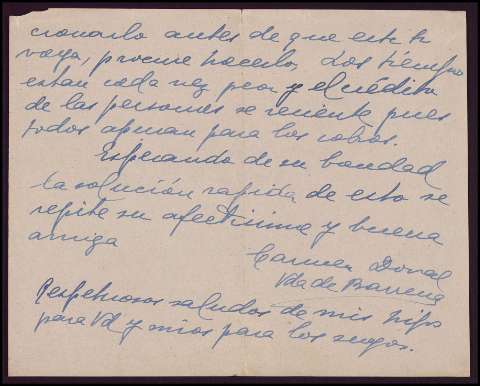 cionarlo antes de que este te
vaya, procure hacerlo, Los tiempos
estan cada vez peor y el crédito
de las personas se reciente pues
todos apuran para los cobros.
Esperando de su bondad
la solución rapida de esto se
repite su afectisima y buena
amiga
Carmen Donal
Vda de Barrena
Respetuosos saludos de mis hijos
para Vd y mios para los suyos.